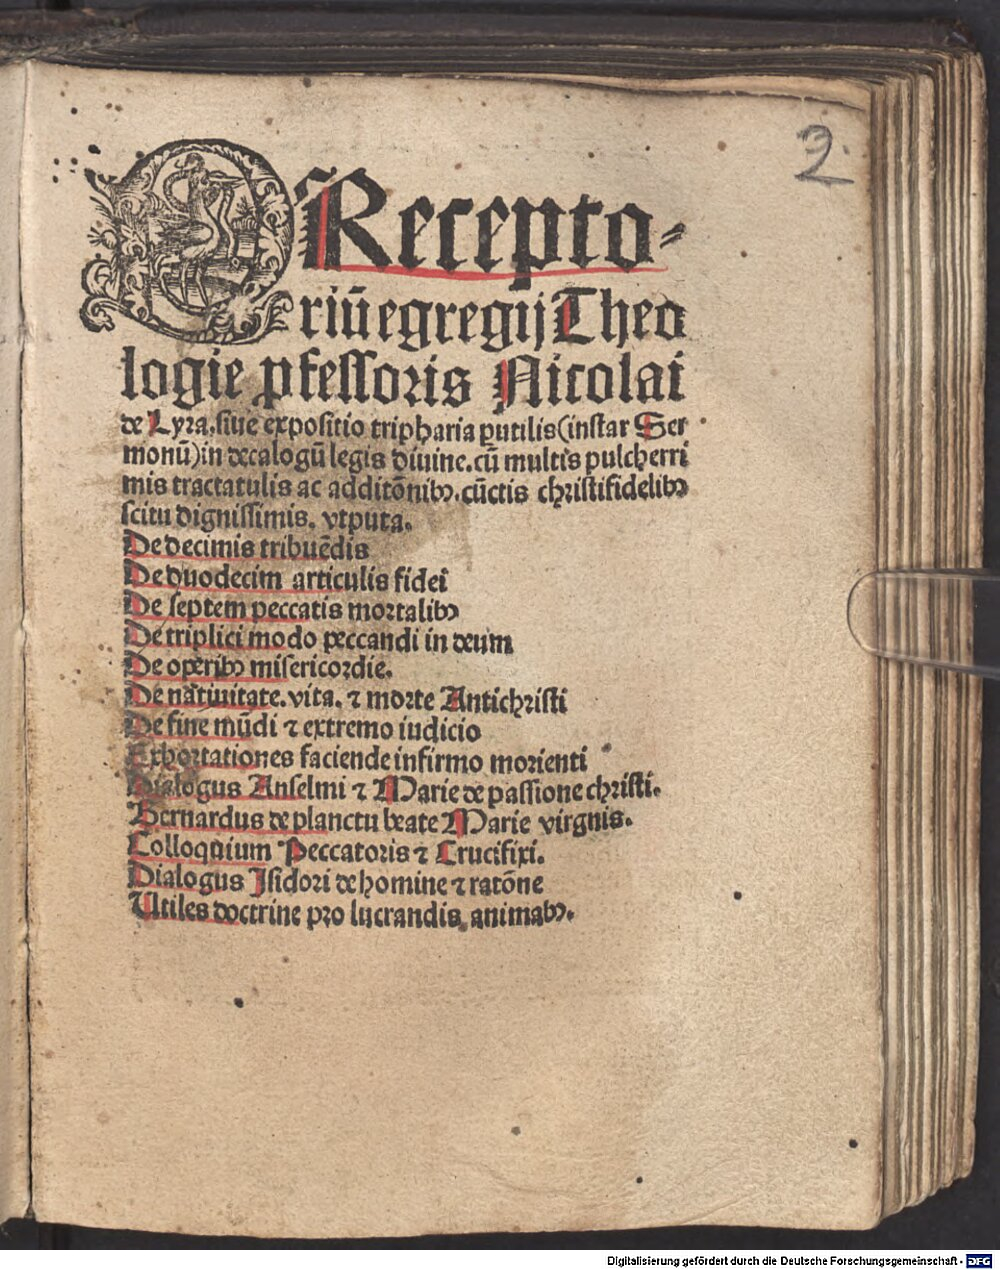 2.
PRecepto⸗
riū egregij Theo
logie ꝓfessoris Nicolai
de Lyra, siue expositio tripharia ꝑutilis (instar Ser
monū) in decalogū legis diuine. cū multis pulcherri
mis tractatulis ac additōnibꝫ. cūctis christifidelibꝫ
scitu dignissimis. vtputa.
De decimis tribuēdis
De duodecim articulis fidei
De septem peccatis mortalibꝫ
De triplici modo peccandi in deum
De operibꝫ misericordie.
De natiuitate. vita. ⁊ morte Antichristi
De fine mūdi ⁊ extremo iudicio
Exhortationes faciende infirmo morienti
Dialogus Anselmi ⁊ Marie de passione christi.
Bernardus de planctu beate Marie virgnis.
Colloquium Peccatoris ⁊ Crucifixi.
Dialogus Isidori de homine ⁊ ratōne
Utiles doctrine pro lucrandis animabꝫ.
Digitalisierung gefördert durch die Deutsche Forschungsgemeinschaft - DFG